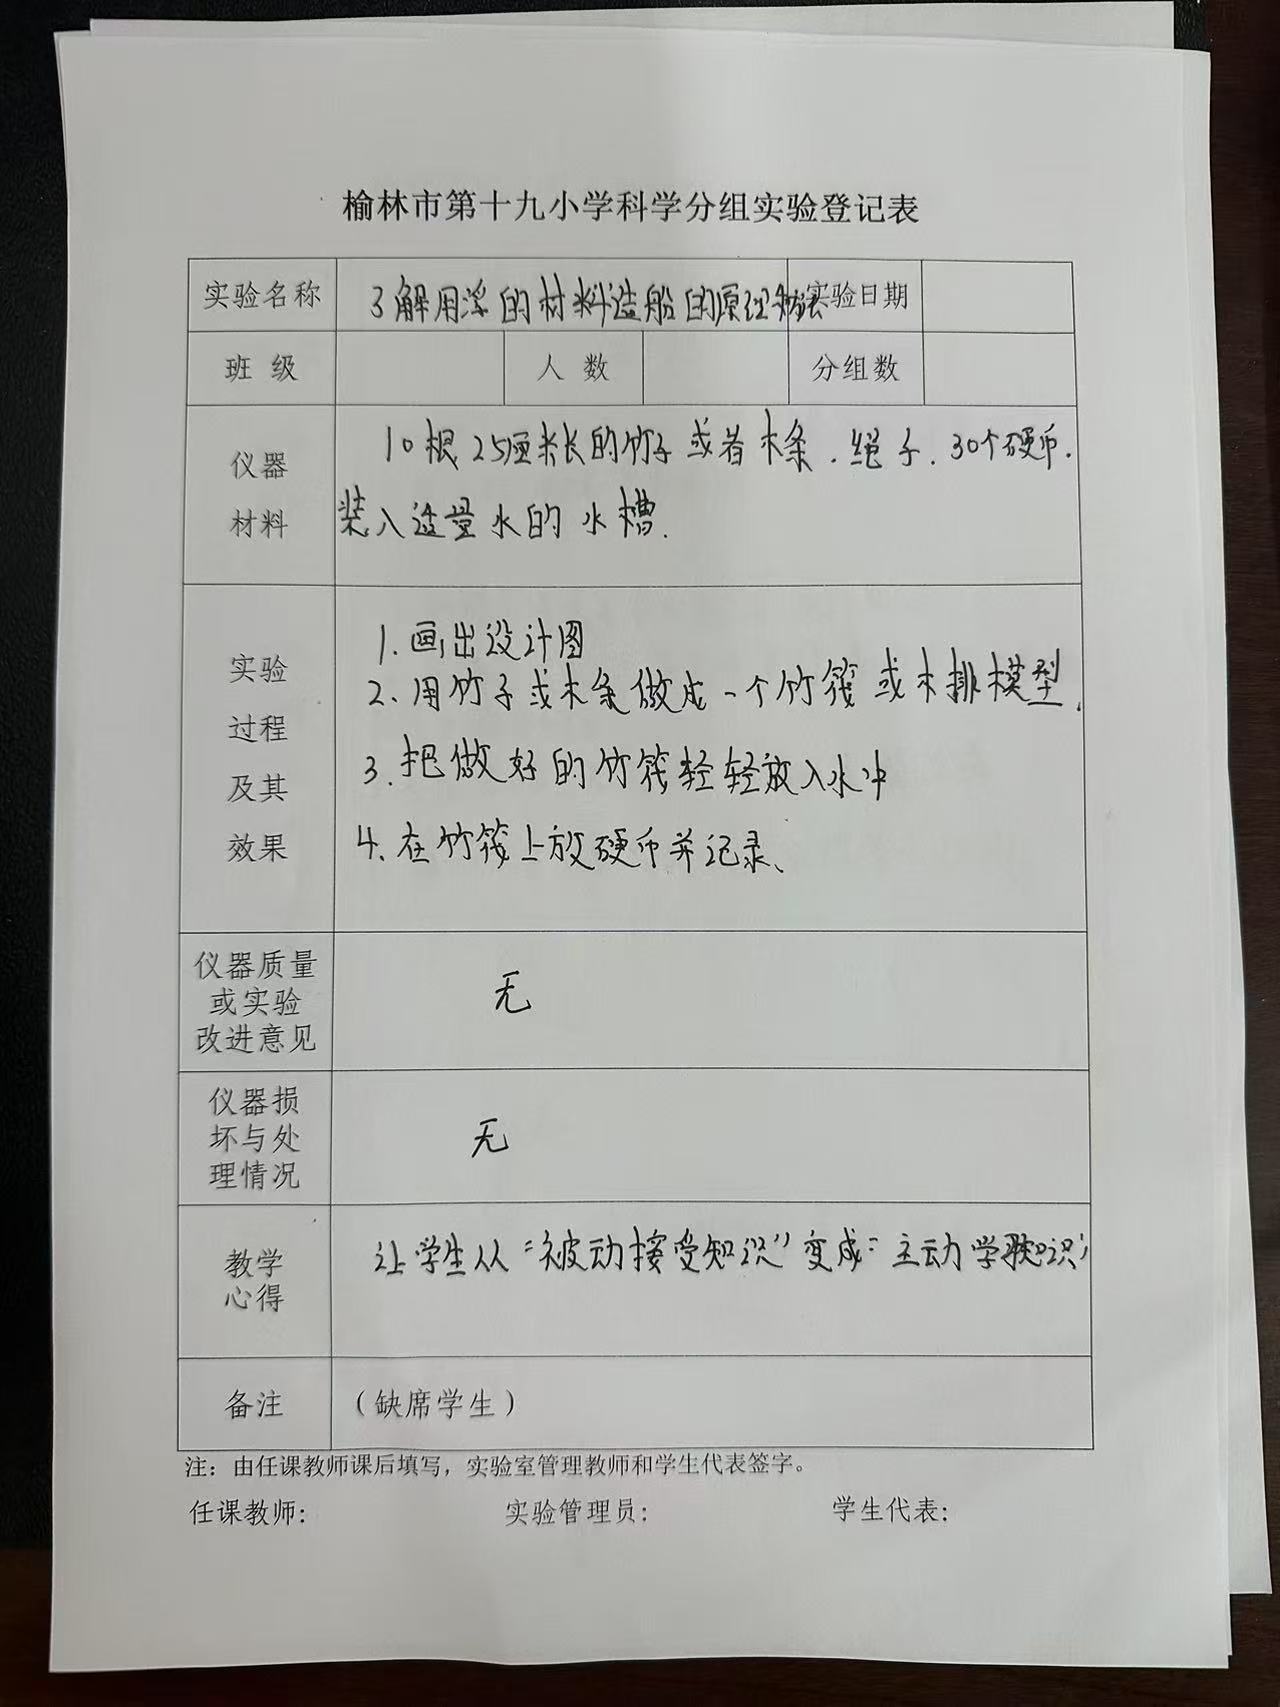 榆林市第十九小学科学分组实验登记表
实验名称 了解用浮的材料造船的原理和方法 实验日期
班 级 人 数 分组数
仪器
材料
10根25厘米长的竹子或者木条.绳子.30个硬币.
装入适量水的水槽.
实验
过程
及其
效果
1.画出设计图
2、用竹子或木条做成一个竹筏或木排模型.
3.把做好的竹筏轻轻放入水中
4、在竹筏上放硬币并记录、
仪器质量
或实验
改进意见
无
仪器损
坏与处
理情况
无
教学
心得
让学生从“被动接受知识”变成“主动学知识”
备注 (缺席学生)
注：由任课教师课后填写，实验室管理教师和学生代表签字。
任课教师: 实验管理员: 学生代表: